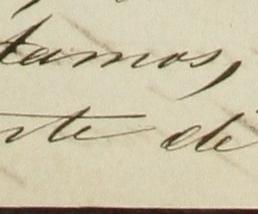 tamos,
rte dê